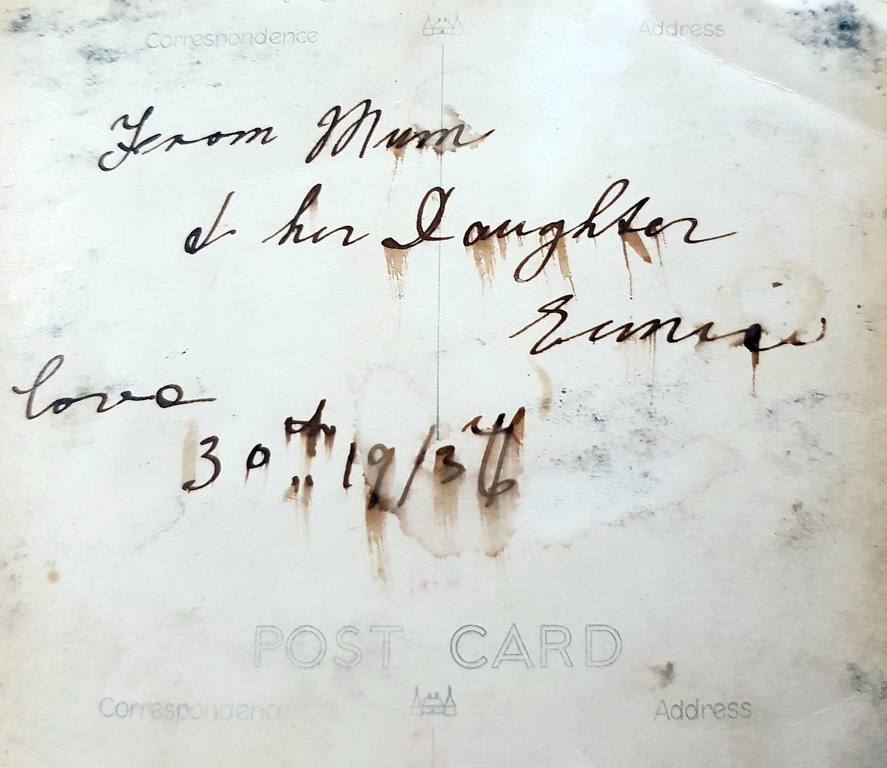 Correspondence Address
From Mum
& her Daughter
Eunice
love
30th 19/36
POST CARD
Correspondence Address